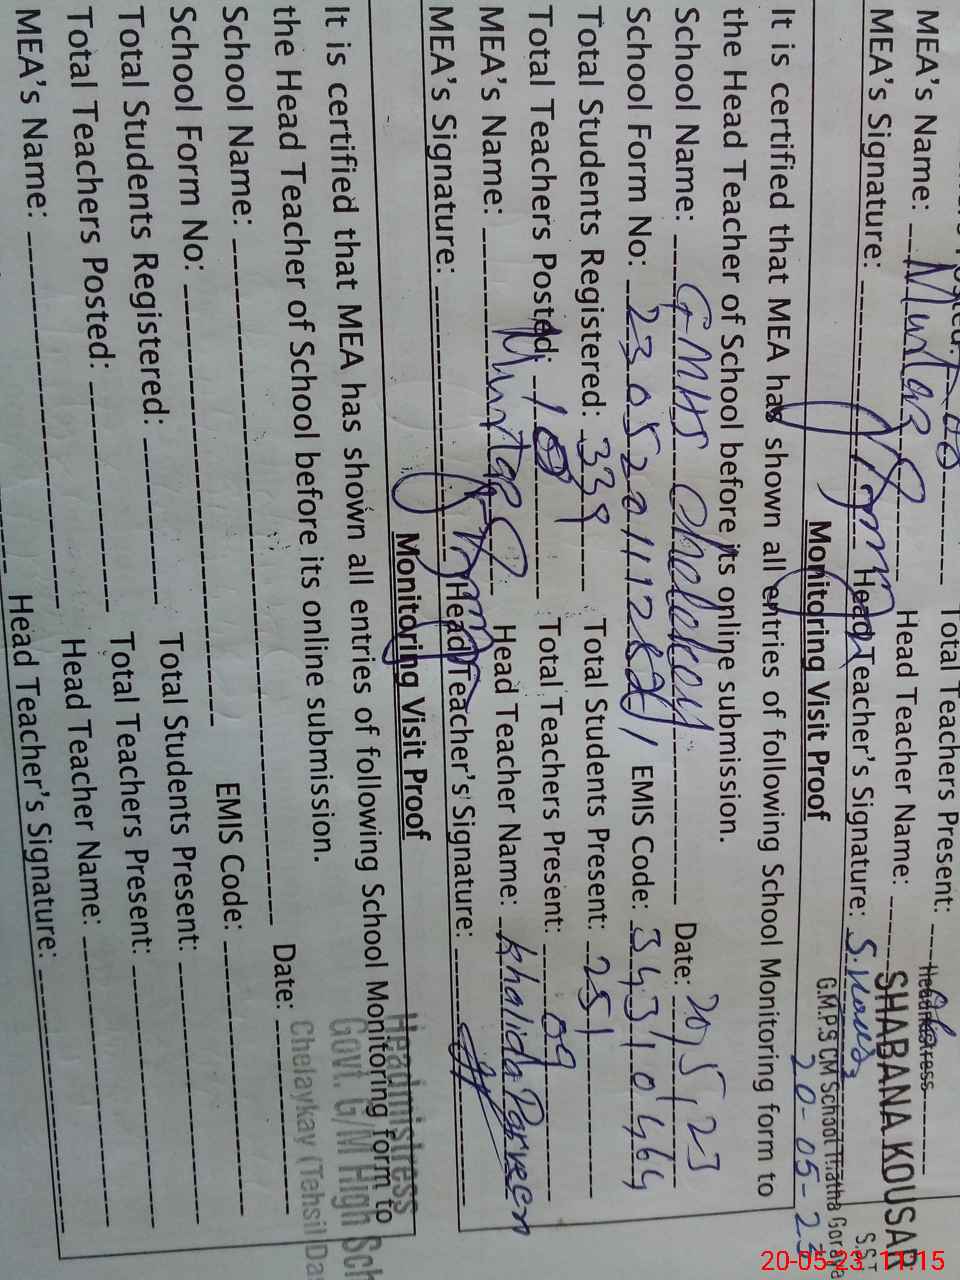 Total Teachers Present:
MEA's Name: Mumtaz Head Teacher Name:
Headmistress
SHABANA KOUSAR
S.S.T
MEA's Signature: Head Teacher's Signature: S. Kousar
G.M.P.S CM School Thatha Goraya
20-05-23
Monitoring Visit Proof
It is certified that MEA has shown all entries of following School Monitoring form to
the Head Teacher of School before its online submission.
School Name: GMHS Chelekey Date: 20/5/23
School Form No: EMIS Code: 34310464
Total Students Registered: 339 Total Students Present: 251
Total Teachers Posted: 10 Total Teachers Present: 09
MEA's Name: Mumtaz Head Teacher Name: Khalida Parveen
MEA's Signature: Head Teacher's Signature:
Monitoring Visit Proof
Headmistress
Govt. G/M High Sch
Chelaykay (Tehsil Da
It is certified that MEA has shown all entries of following School Monitoring form to
the Head Teacher of School before its online submission.
School Name: Date:
School Form No: EMIS Code:
Total Students Registered: Total Students Present:
Total Teachers Posted: Total Teachers Present:
MEA's Name: Head Teacher Name:
Head Teacher's Signature:
20-05-23 11:15